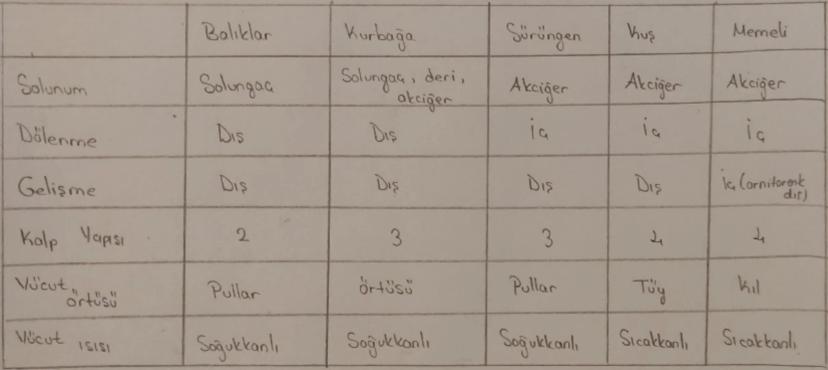 Balıklar Kurbağa Sürüngen Kuş Memeli
Solunum Solungaç Solungaç, deri, akciğer Akciğer Akciğer Akciğer
Dölenme Dış Dış İç İç İç
Gelişme Dış Dış Dış Dış İç (ornitorenk dış)
Kalp Yapısı 2 3 3 4 4
Vücut örtüsü Pullar örtüsü Pullar Tüy Kıl
Vücut ısısı Soğukkanlı Soğukkanlı Soğukkanlı Sıcakkanlı Sıcakkanlı